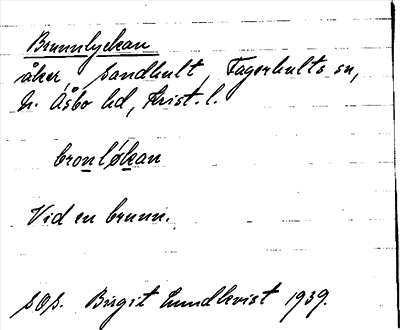 Brunnlyckan
åker, Sandhult, Fagerhults sn,
N. Åsbo hd, Krist. l.
bronløkan
Vid en brunn.
SOS. Birgit Lundkvist 1939.